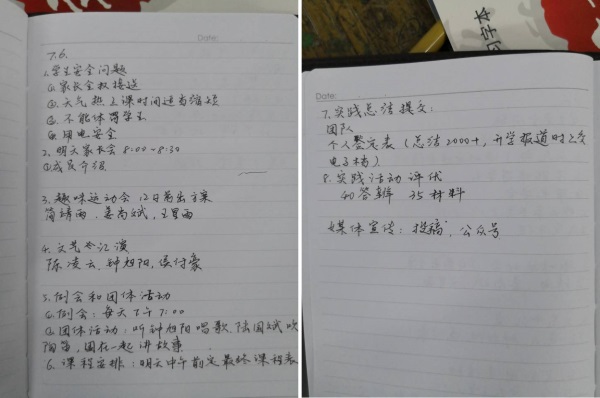 Date:
7.6.
1.学生安全问题
①家长全权接送
②.天气热上课时间适当缩短
③.不能体罚学生
④用电安全
2. 明天家长会 8:00~8:30
①成员介绍
3. 趣味运动会 12日高出方案
简靖雨.姜尚斌,王星雨
4. 文艺汇演
陈凌云,钟旭阳,侯付豪
5.例会和团体活动
①例会:每天下午7:00
②团体活动:听钟旭阳唱歌,陆国斌吹
陶笛,围在一起讲故事
6.课程安排:明天中午前定最终课程表
Date:
7.实践总结提交:
团队
个人鉴定表(总结2000+,开学报道时上交
电子档)
8.实践活动评优
40答辩 35材料
媒体宣传:投稿,公众号